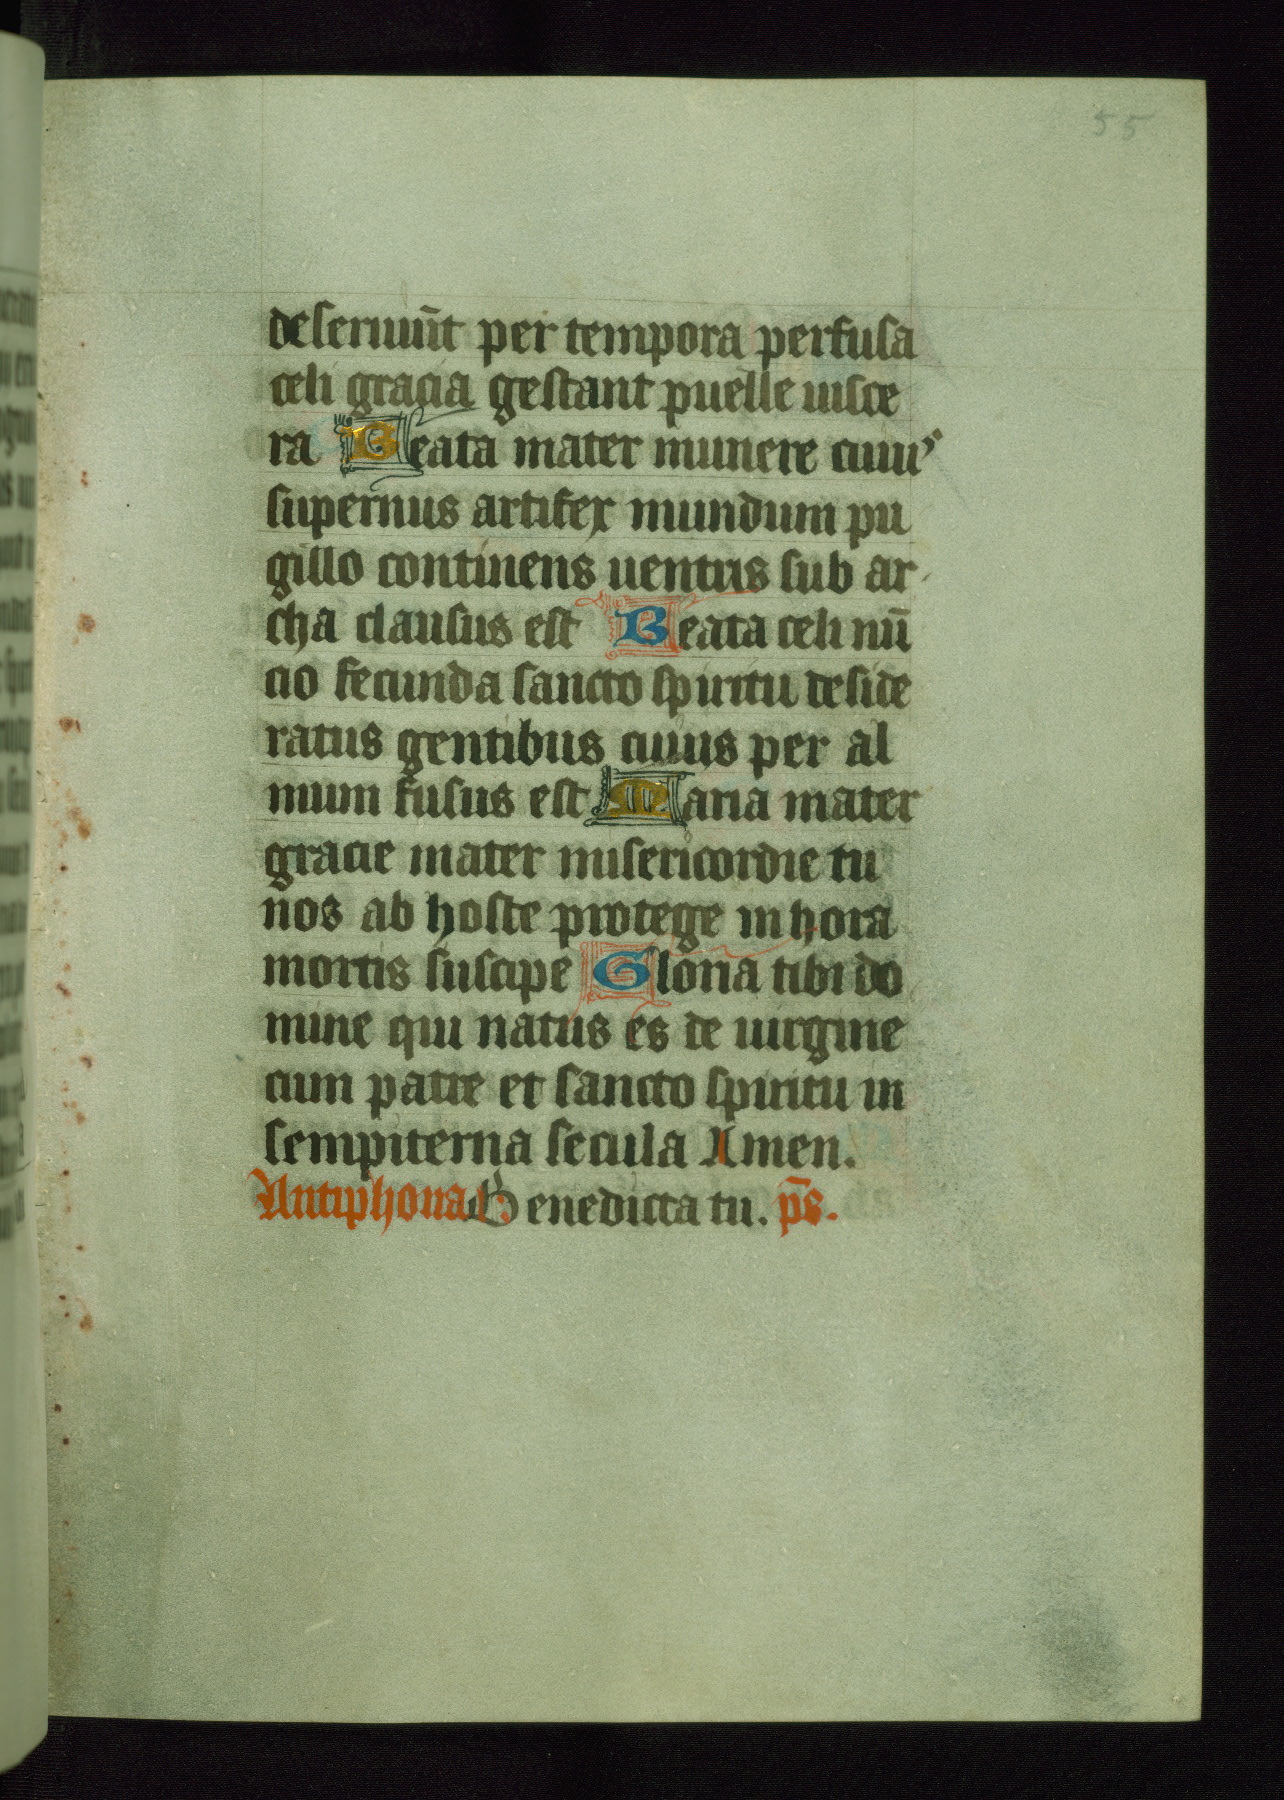 55
deseruiūt per tempora perfusa
celi gracia gestant puelle uisce
ra Beata mater munere cuiuꝰ
supernus artifex mundum pu
gillo continens uentris sub ar
cha clausus est Beata celi nū
cio fecunda sancto spiritu deside
ratus gentibus cuius per al
mum fusus est Maria mater
gracie mater misericordie tu
nos ab hoste protege in hora
mortis suscipe Gloria tibi do
mine qui natus es de uirgine
cum patre et sancto spiritu in
sempiterna secula Amen.
Antiphona: Benedicta tu. p̄s.